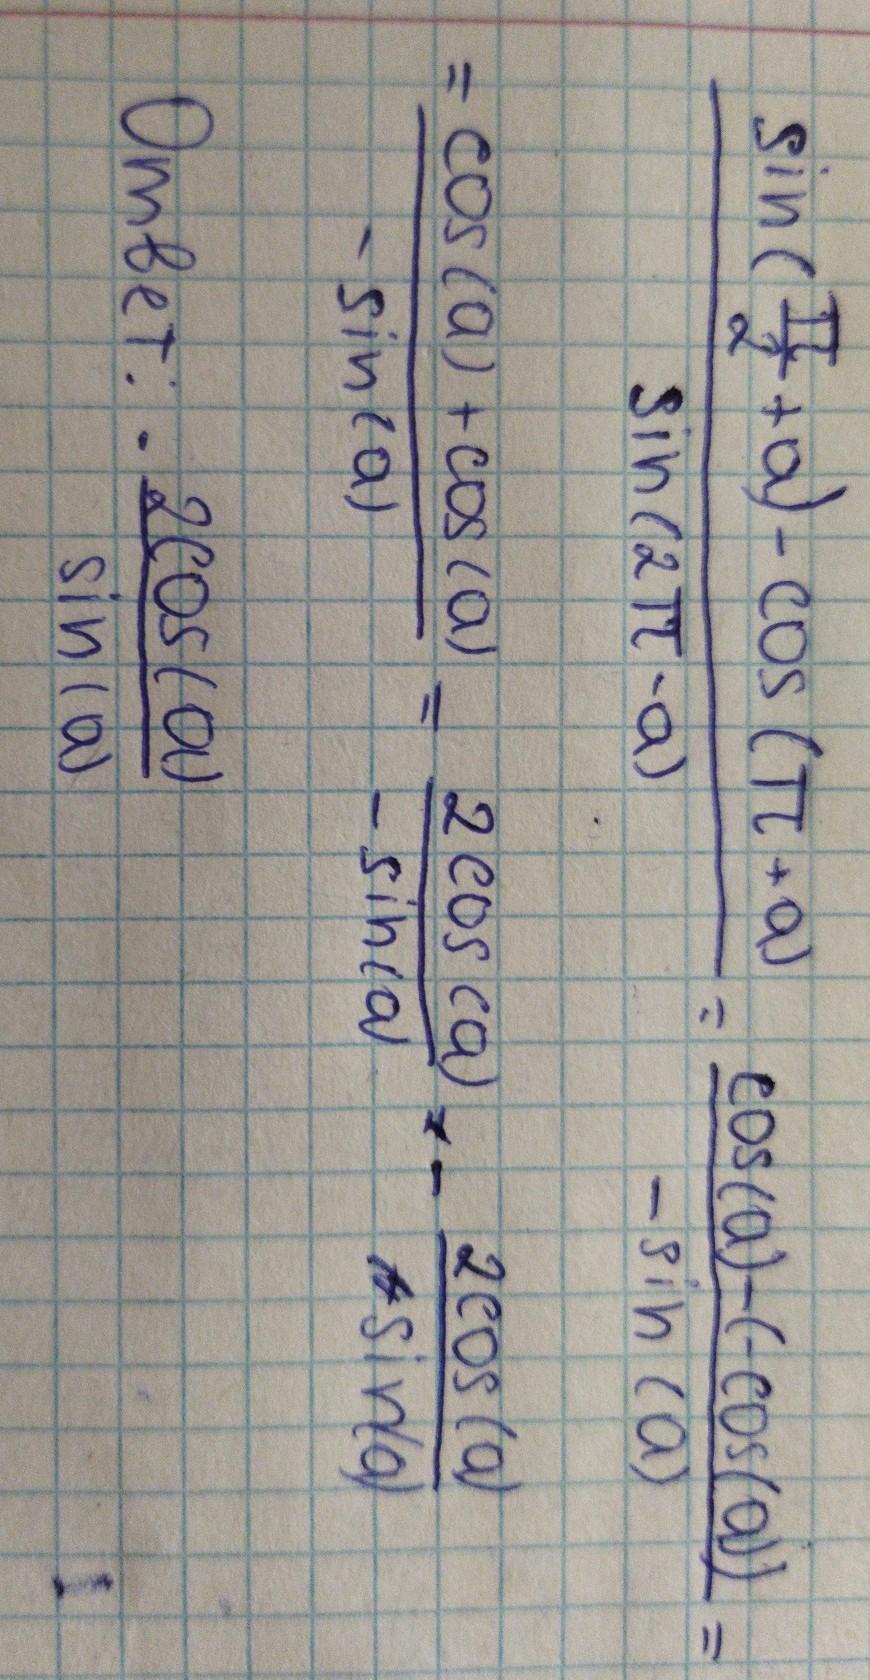 sin(π/2 + a) - cos(π + a) / sin(2π - a) = cos(a) - (-cos(a)) / - sin(a) =
= cos(a) + cos(a) / - sin(a) = 2cos(a) / - sin(a) = - 2cos(a) / sin(a)
Ответ: - 2cos(a) / sin(a)